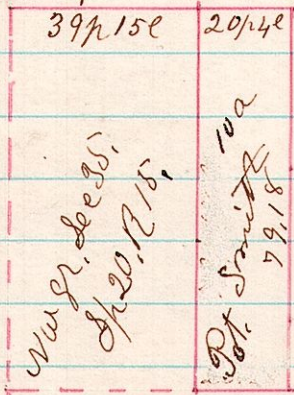 39p15l
20p4l
Nw gr. See 35.
Sp 20. R 15.
Pot. Smith 10a
79.18